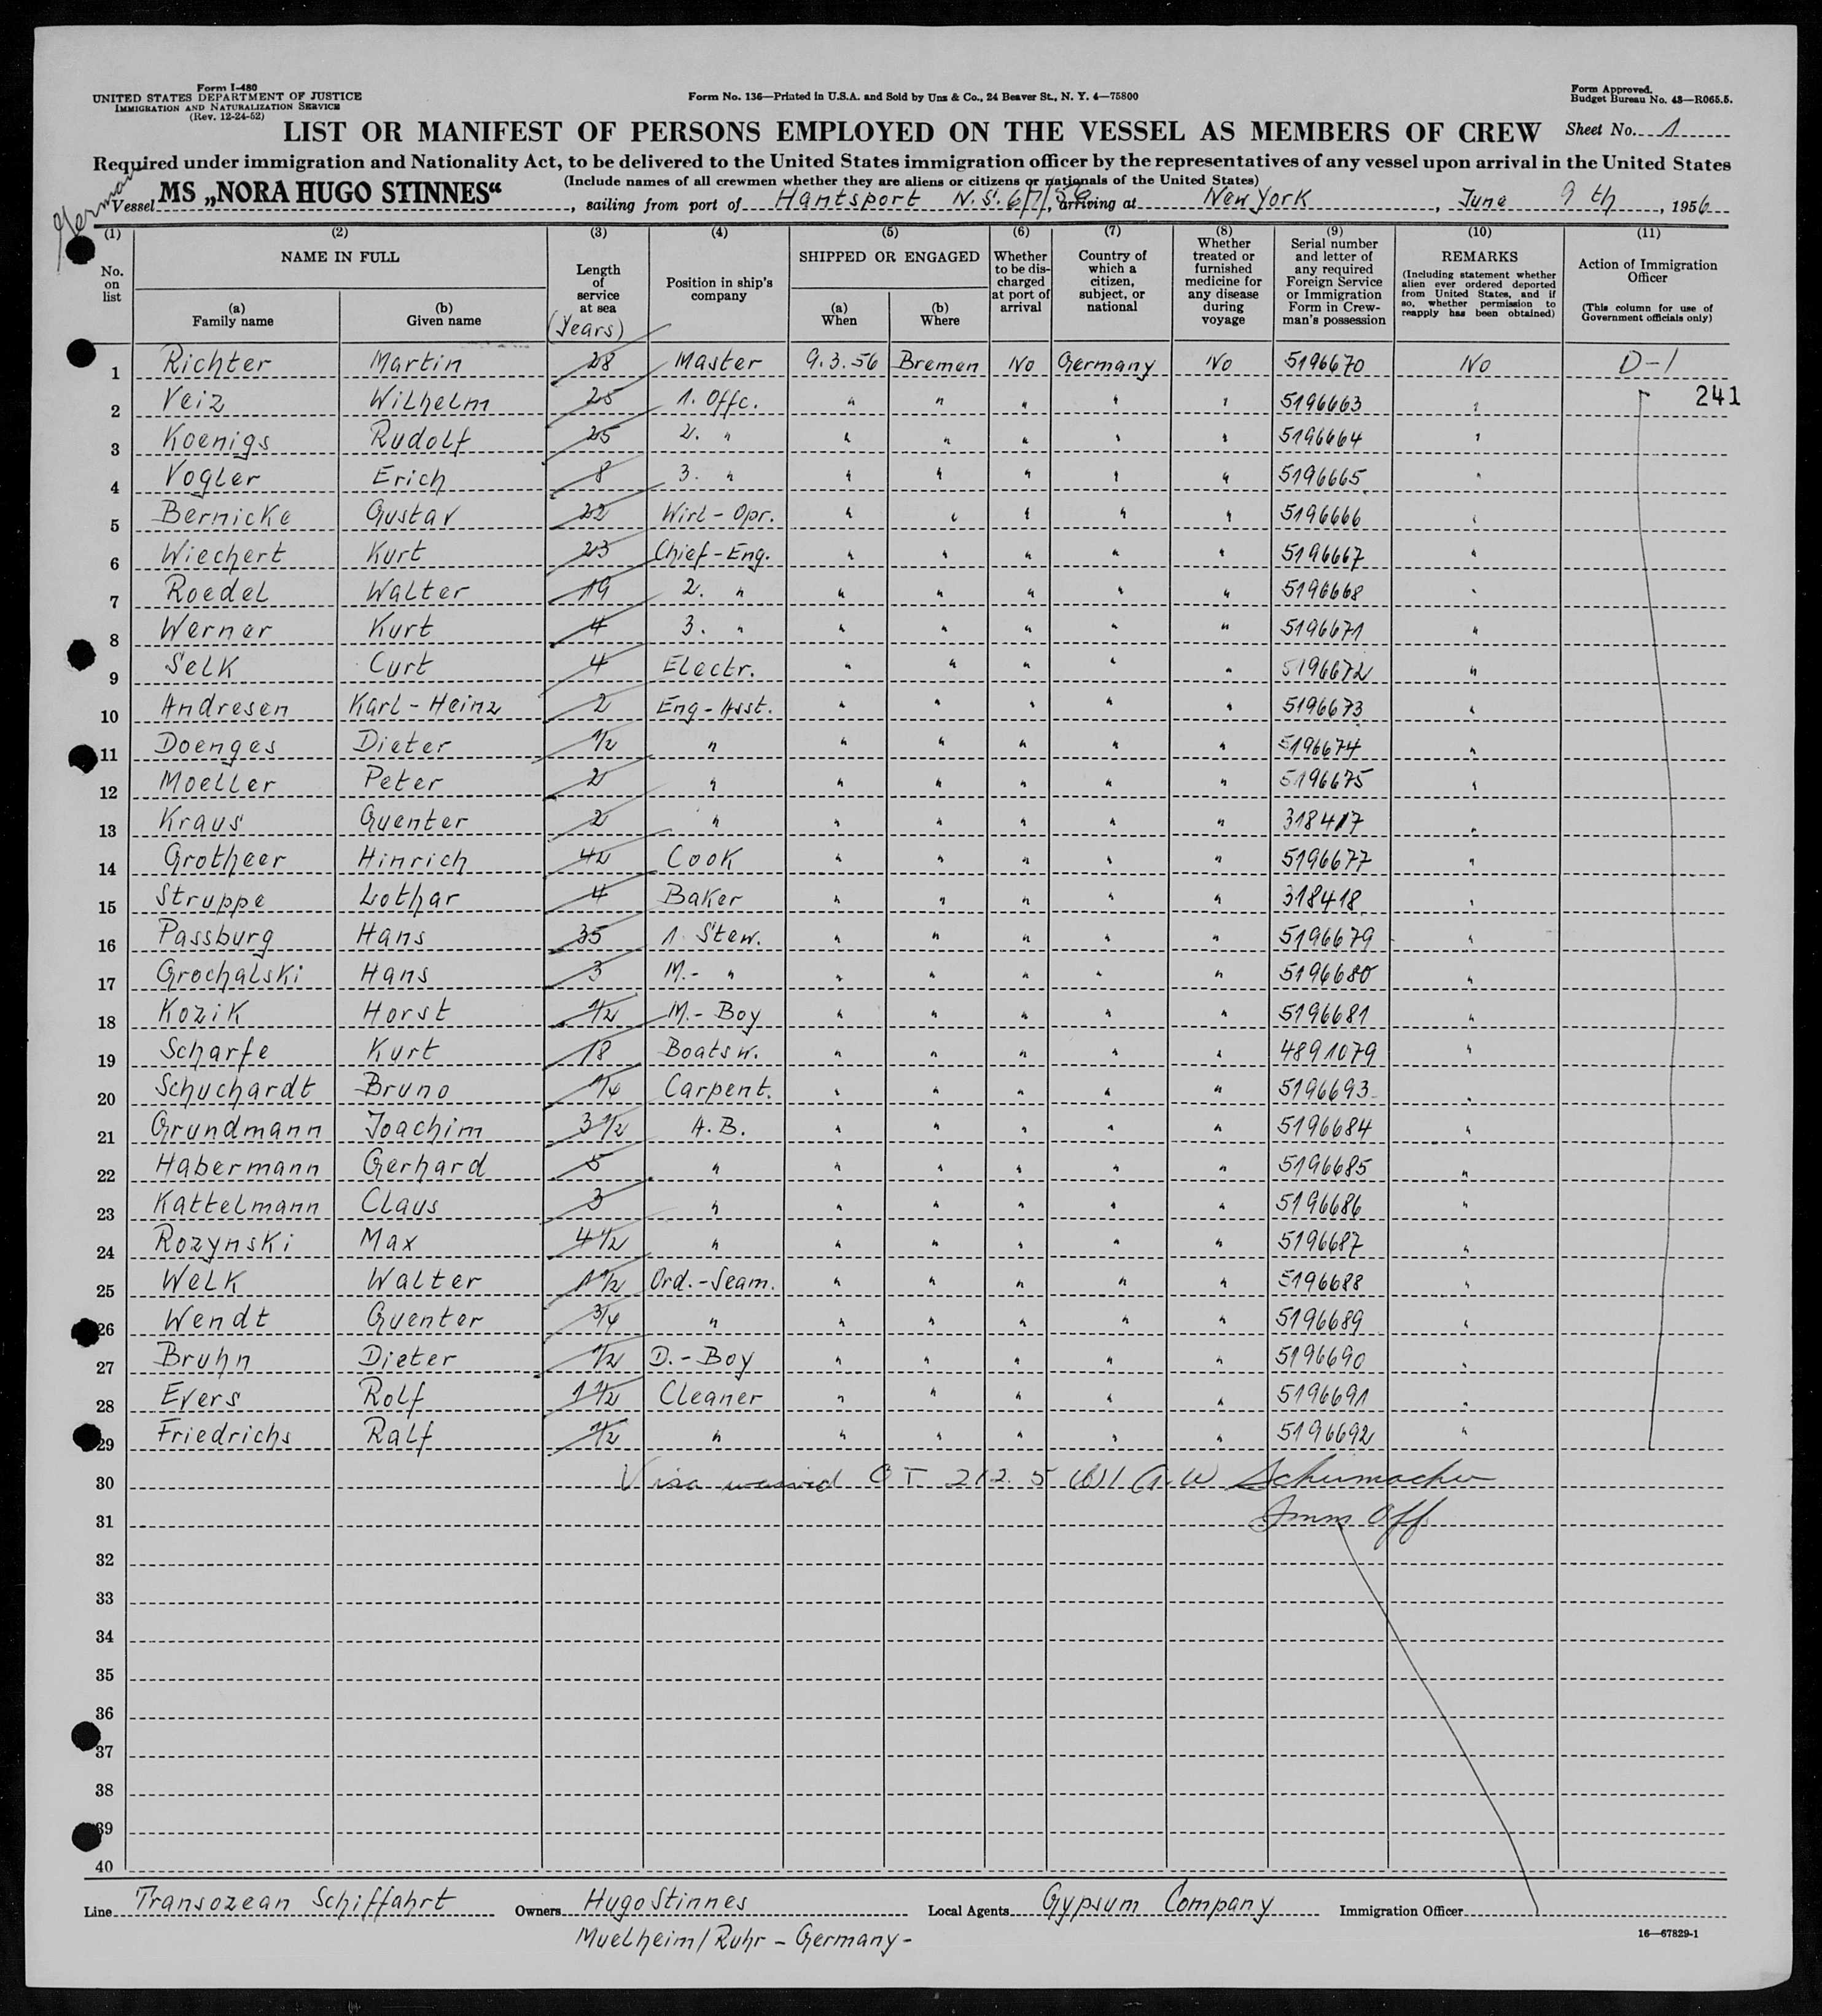 Form I-480
UNITED STATES DEPARTMENT OF JUSTICE
IMMIGRATION AND NATURALIZATION SERVICE
(Rev. 12-24-52)
Form No. 136—Printed in U.S.A. and Sold by Unz & Co., 24 Beaver St., N. Y. 4—75800
Form Approved.
Budget Bureau No. 43—R065.5.
LIST OR MANIFEST OF PERSONS EMPLOYED ON THE VESSEL AS MEMBERS OF CREW Sheet No. 1
Required under immigration and Nationality Act, to be delivered to the United States immigration officer by the representatives of any vessel upon arrival in the United States
(Include names of all crewmen whether they are aliens or citizens or nationals of the United States)
German
Vessel MS „NORA HUGO STINNES“, sailing from port of Hantsport N.S. 6/7/56, arriving at New York, June 9th, 1956
(1) No. on list
(2) NAME IN FULL (a) Family name (b) Given name
(3) Length of service at sea (Years)
(4) Position in ship's company
(5) SHIPPED OR ENGAGED (a) When (b) Where
(6) Whether to be discharged at port of arrival
(7) Country of which a citizen, subject, or national
(8) Whether treated or furnished medicine for any disease during voyage
(9) Serial number and letter of any required Foreign Service or Immigration Form in Crewman's possession
(10) REMARKS (Including statement whether alien ever ordered deported from United States, and if so, whether permission to reapply has been obtained)
(11) Action of Immigration Officer (This column for use of Government officials only)
1 Richter Martin 28 Master 9.3.56 Bremen No Germany No 5196670 No D-1
241
2 Veiz Wilhelm 25 1. Offc. " " " " " 5196663 "
3 Koenigs Rudolf 25 2. " " " " " " 5196664 "
4 Vogler Erich 8 3. " " " " " " 5196665 "
5 Bernicke Gustav 22 Wirl-Opr. " " " " " 5196666 "
6 Wiechert Kurt 23 Chief-Eng. " " " " " 5196667 "
7 Roedel Walter 19 2. " " " " " " 5196668 "
8 Werner Kurt 4 3. " " " " " " 5196671 "
9 Selk Curt 4 Electr. " " " " " 5196672 "
10 Andresen Karl-Heinz 2 Eng-Asst. " " " " " 5196673 "
11 Doenges Dieter 1/2 " " " " " " 5196674 "
12 Moeller Peter 2 " " " " " " 5196675 "
13 Kraus Guenter 2 " " " " " " 318417 "
14 Grotheer Hinrich 42 Cook " " " " " 5196677 "
15 Struppe Lothar 4 Baker " " " " " 318418 "
16 Passburg Hans 35 1. Stew. " " " " " 5196679 "
17 Grochalski Hans 3 M.- " " " " " " 5196680 "
18 Kozik Horst 1/2 M.-Boy " " " " " 5196681 "
19 Scharfe Kurt 18 Boatsw. " " " " " 4891079 "
20 Schuchardt Bruno 1/4 Carpent. " " " " " 5196693 "
21 Grundmann Joachim 3 1/2 A.B. " " " " " 5196684 "
22 Habermann Gerhard 5 " " " " " " 5196685 "
23 Kattelmann Claus 3 " " " " " " 5196686 "
24 Rozynski Max 4 1/2 " " " " " " 5196687 "
25 Welk Walter 1 1/2 Ord.-Seam. " " " " " 5196688 "
26 Wendt Guenter 3/4 " " " " " " 5196689 "
27 Bruhn Dieter 1/2 D.-Boy " " " " " 5196690 "
28 Evers Rolf 1 1/2 Cleaner " " " " " 5196691 "
29 Friedrichs Ralf 1/2 " " " " " " 5196692 "
30 Visa waived 212.5 Schumacher
31 Imm Off
32
33
34
35
36
37
38
39
40
Line Transozean Schiffahrt Owners Hugo Stinnes Local Agents Gypsum Company Immigration Officer
Muelheim/Ruhr - Germany -
16—67829-1